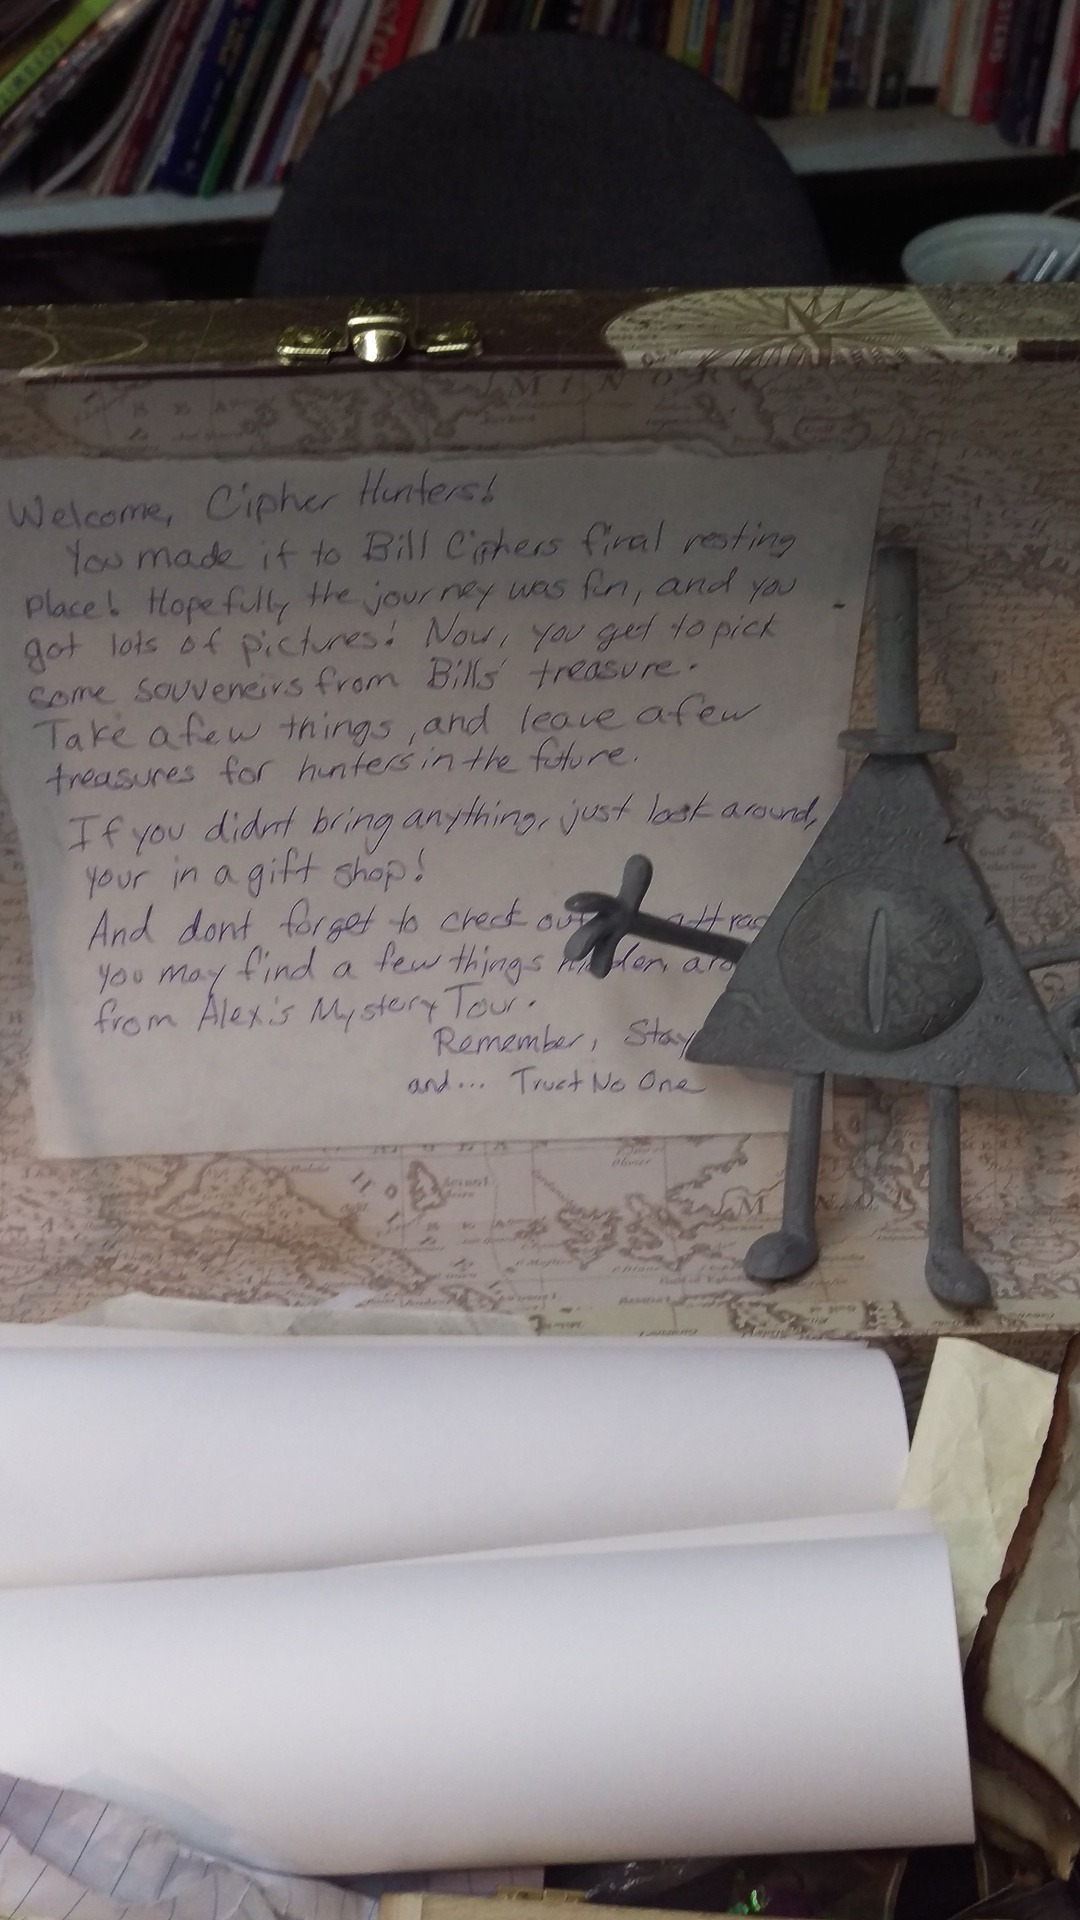 MINOR
Welcome, Cipher Hunters!
You made it to Bill Ciphers final resting
place! Hopefully the journey was fun, and you
got lots of pictures! Now, you get to pick
some souveneirs from Bills' treasure.
Take a few things, and leave a few
treasures for hunters in the future.
If you didnt bring anything, just look around,
your in a gift shop!
And dont forget to check out
you may find a few things hidden
from Alex's Mystery Tour.
Remember, Stay
and... Trust No One